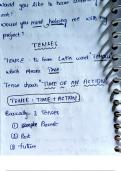 Would you like to have
me?
Would you mind helping me with my
project?
TENSES
"TENSE" is from Latin word "TEMPUS"
which means Time
Tense shows "TIME OF AN ACTION"
TENSE : TIME + ACTION
Basically 3 Tenses
(1) Present
(2) Past
(3) Future